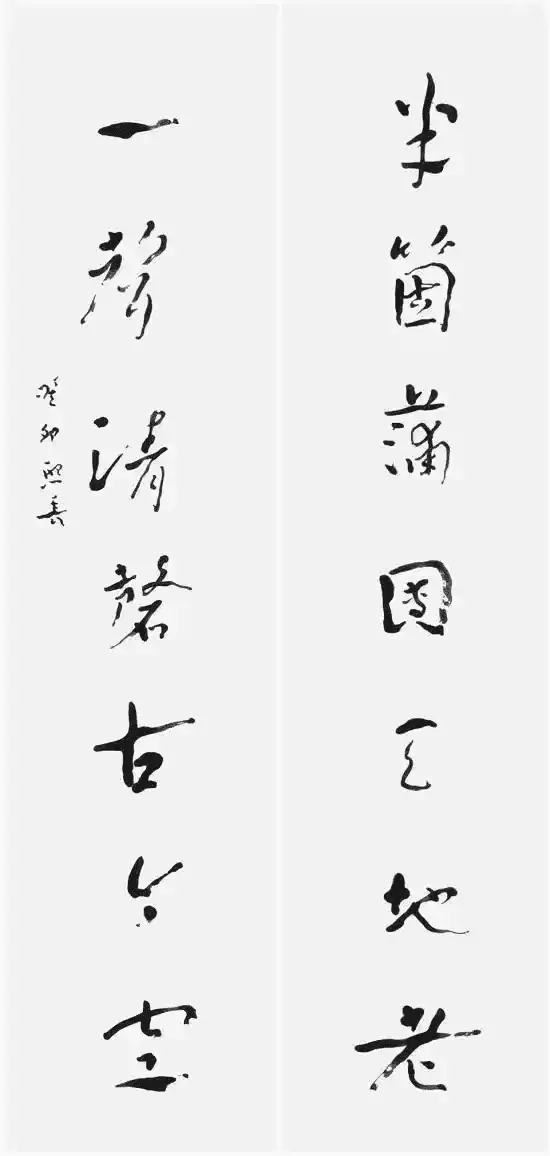 半箇蒲團天地老
一聲清磬古今空
癸卯熙長